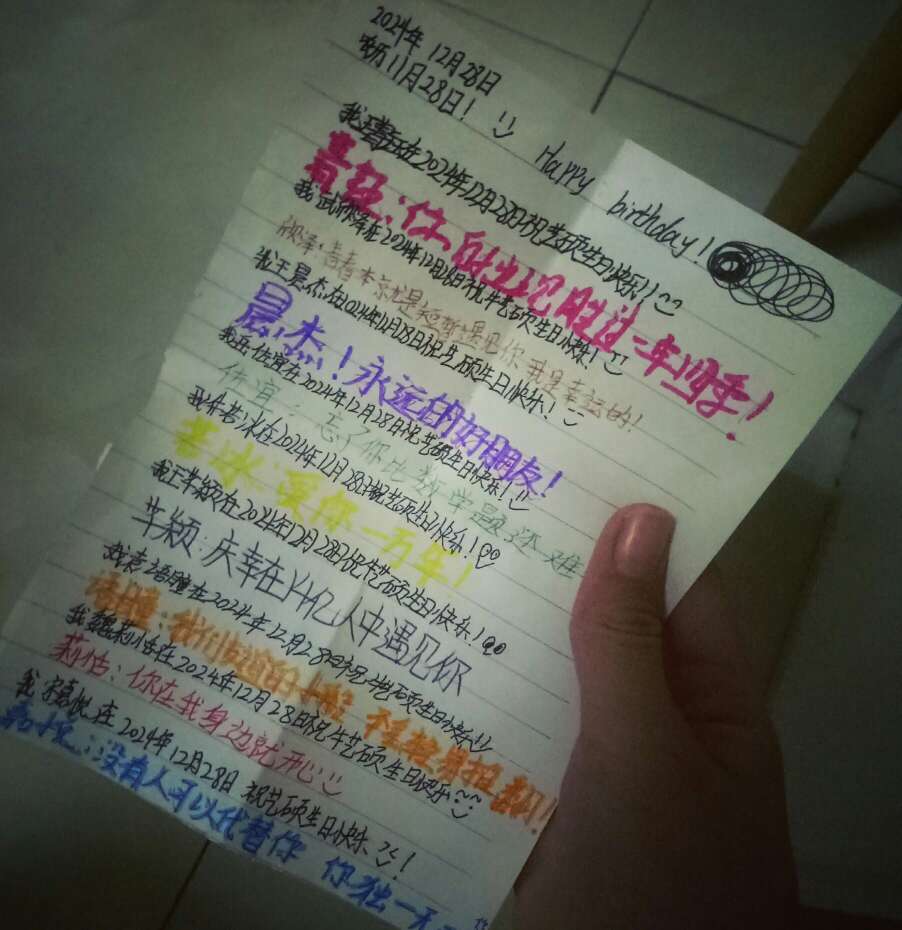 2024年12月28日
农历11月28日!
Happy birthday!
我王若 在2024年12月28日祝艺硕生日快乐!!
若 :你的出现胜过一年四季!
我武欣泽在2024年12月28日祝牛艺硕生日快乐!
欣泽:青春本就是短暂 遇见你我是幸运的!
我王晨杰在2024年12月28日祝艺硕生日快乐!
晨杰!永远的好朋友!
我岳佳宜在2024年12月28日祝艺硕生日快乐!
佳宜:忘了你比数学题还难
我 若冰在2024年12月28日祝艺硕生日快乐!
若冰:爱你一万年!
我王芊颖在2024年12月28日祝牛艺硕生日快乐!
芊颖:庆幸在14亿人中遇见你
我 语瞳在2024年12月28日祝艺硕生日快乐
语瞳:我们 的
我魏莉怡在2024年12月28日祝牛艺硕生日快乐
莉怡:你在我身边就开心
我宋嘉悦在2024年12月28日祝艺硕生日快乐!
嘉悦:没有人可以代替你 你独一无